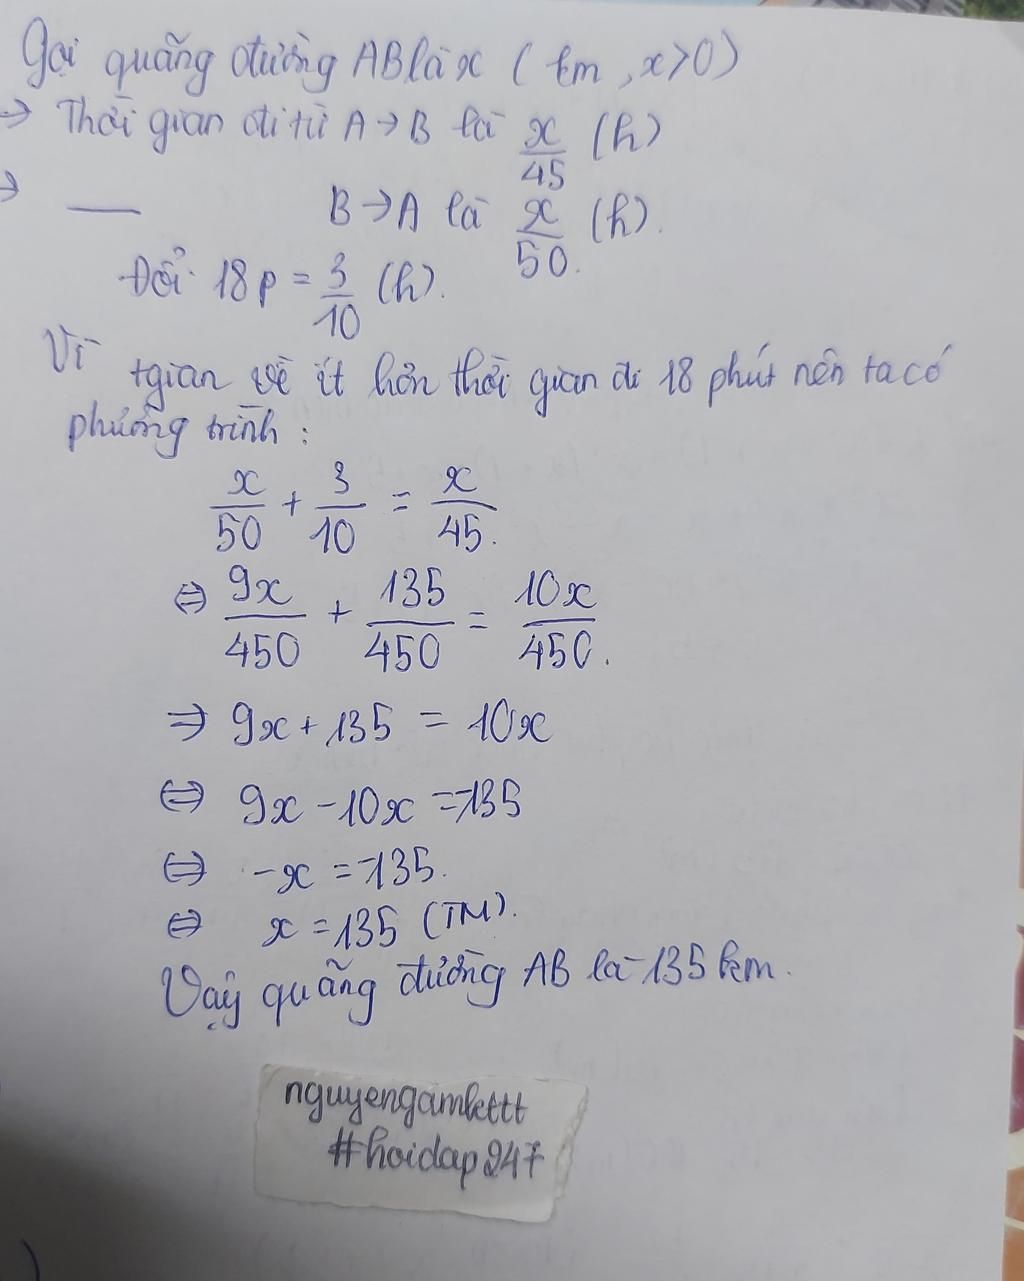 Gọi quãng đường AB là x (km, x>0)
→ Thời gian đi từ A→B là x/45 (h)
→ — B→A là x/50 (h).
Đổi 18p = 3/10 (h).
Vì tgian về ít hơn thời gian đi 18 phút nên ta có
phương trình :
x/50 + 3/10 = x/45.
⇔ 9x/450 + 135/450 = 10x/450.
⇒ 9x + 135 = 10x
⇔ 9x - 10x = -135
⇔ -x = -135.
⇔ x = 135 (TM).
Vậy quãng đường AB là 135 km.
nguyengamkttt
#hoidap247